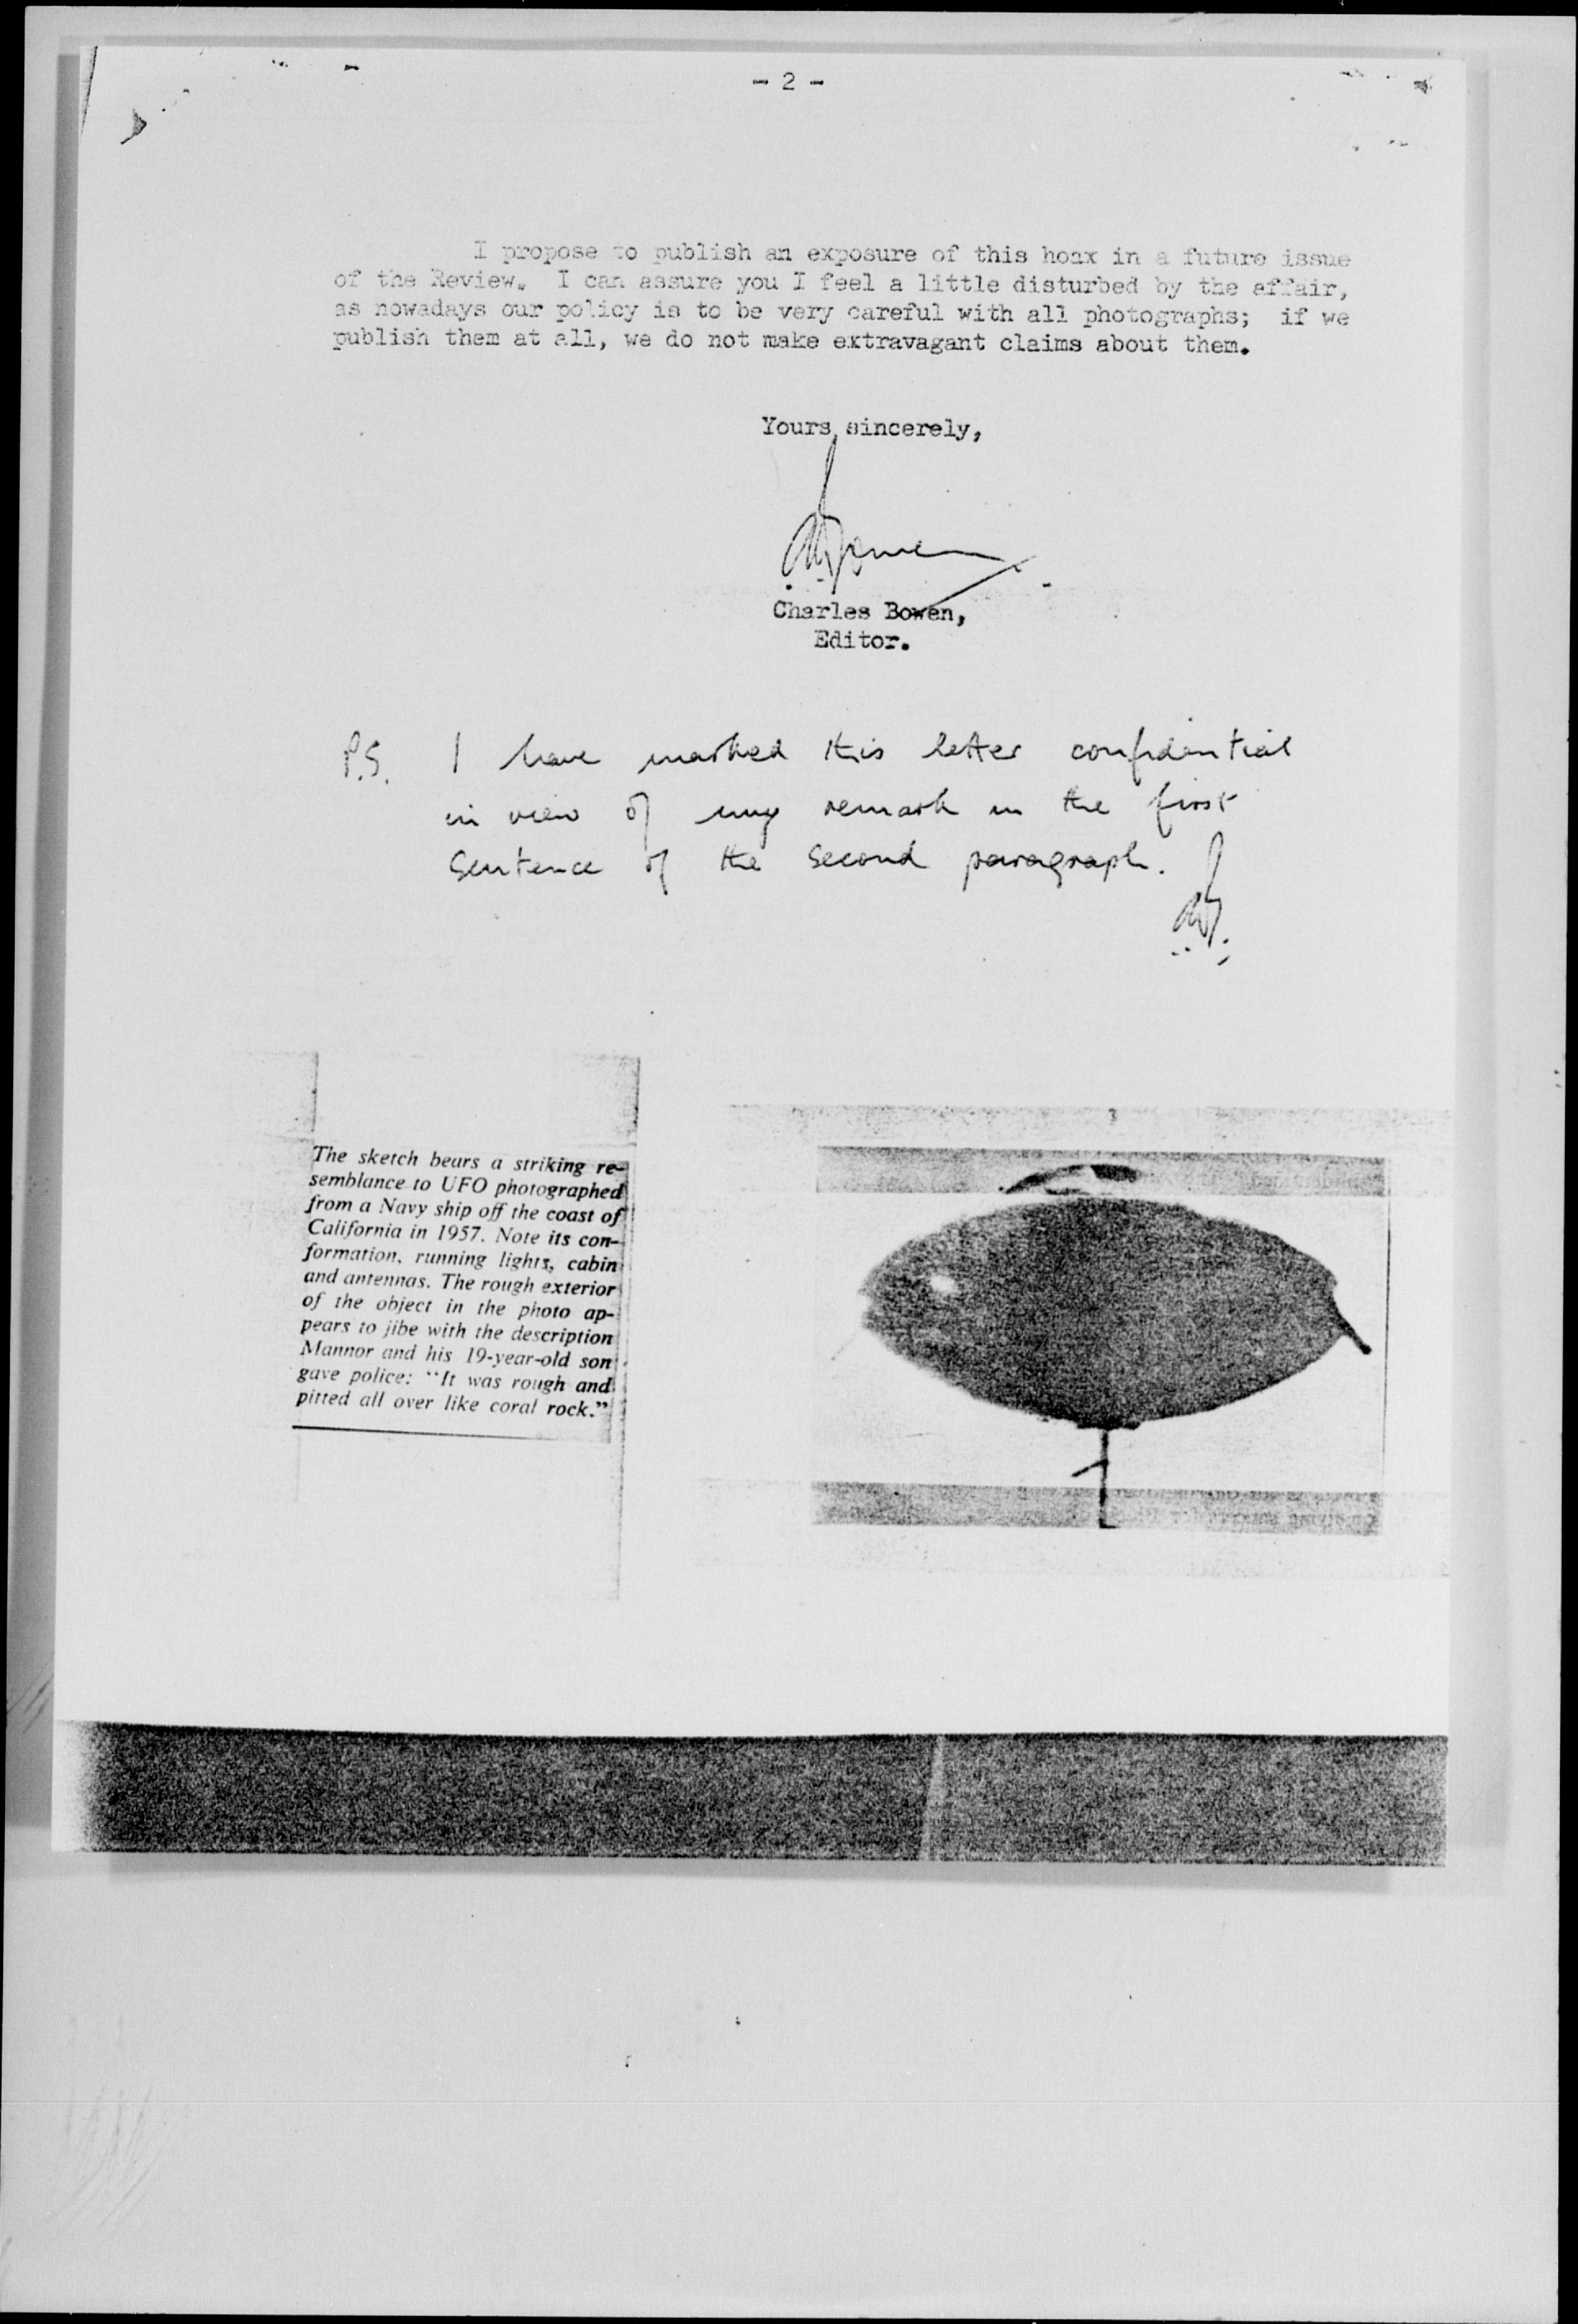 - 2 -
I propose to publish an exposure of this hoax in a future issue
of the Review. I can assure you I feel a little disturbed by the affair,
as nowadays our policy is to be very careful with all photographs; if we
publish them at all, we do not make extravagant claims about them.
Yours sincerely,
Charles Bowen,
Editor.
P.S. I have marked this letter confidential
in view of my remark in the first
sentence of the second paragraph.
The sketch bears a striking re-
semblance to UFO photographed
from a Navy ship off the coast of
California in 1957. Note its con-
formation, running lights, cabin
and antennas. The rough exterior
of the object in the photo ap-
pears to jibe with the description
Mannor and his 19-year-old son
gave police: "It was rough and
pitted all over like coral rock."